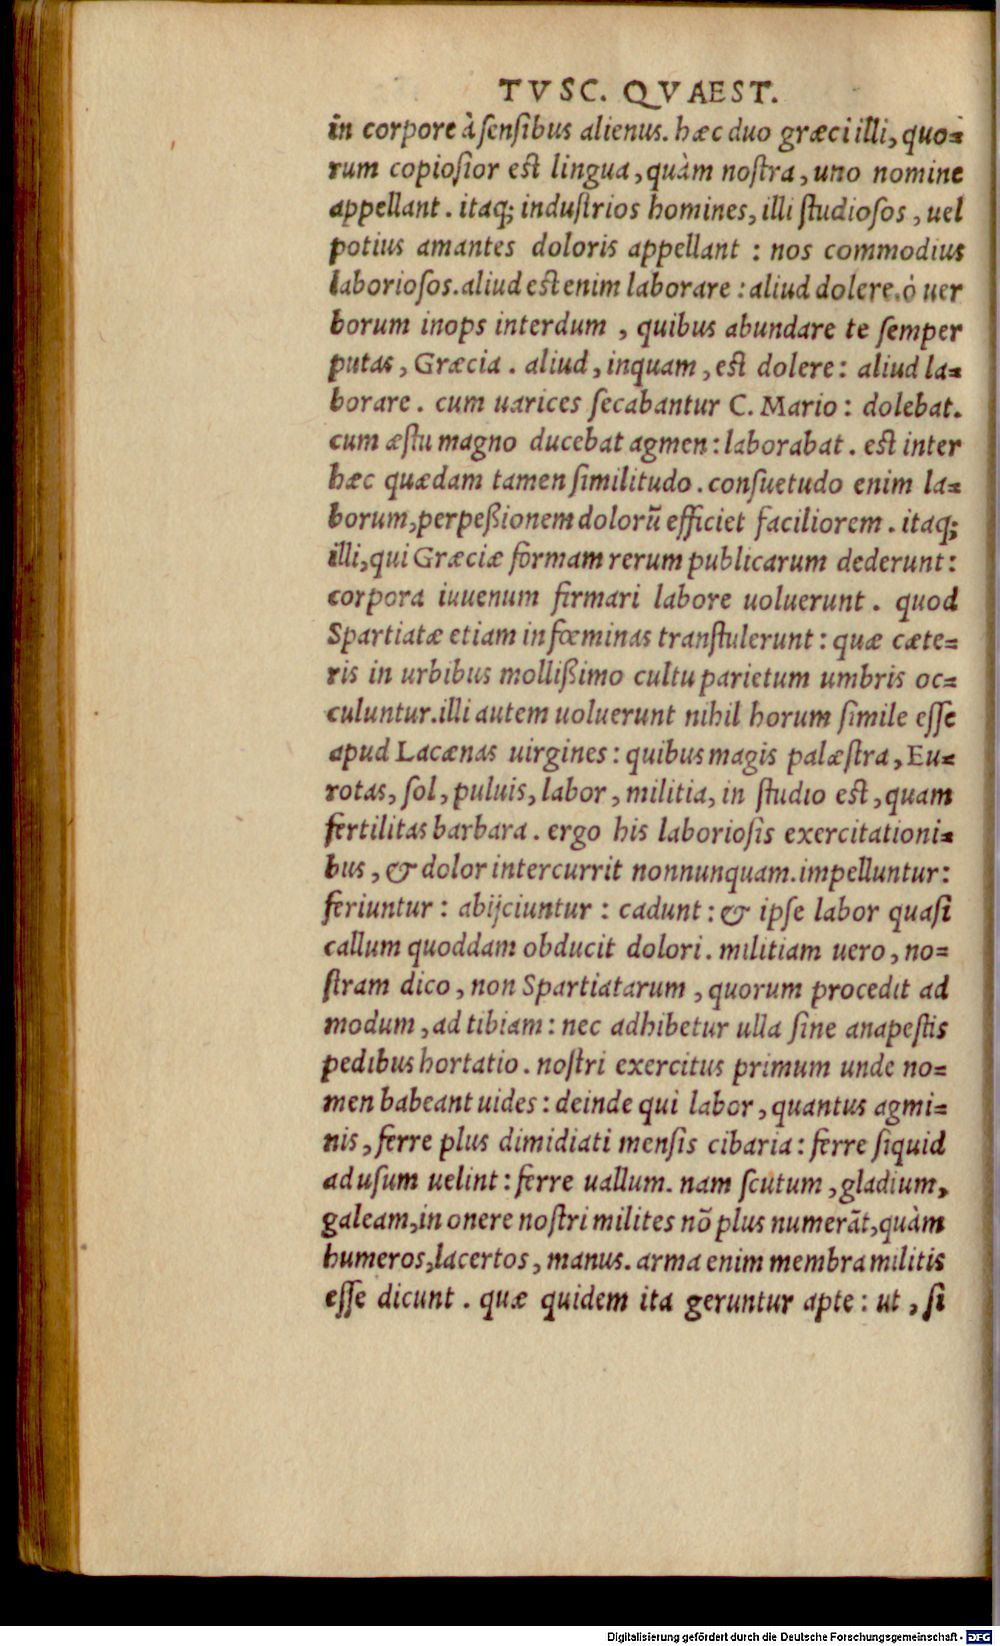 TVSC. QVAEST.
in corpore à sensibus alienus. hæc duo græci illi, quo-
rum copiosior est lingua, quàm nostra, uno nomine
appellant. itaq; industrios homines, illi studiosos, uel
potius amantes doloris appellant : nos commodius
laboriosos. aliud est enim laborare : aliud dolere. ò uer
borum inops interdum, quibus abundare te semper
putas, Græcia. aliud, inquam, est dolere: aliud la-
borare. cum uarices secabantur C. Mario: dolebat.
cum æstu magno ducebat agmen: laborabat. est inter
hæc quædam tamen similitudo. consuetudo enim la-
borum, perpeßionem dolorũ efficiet faciliorem. itaq;
illi, qui Græciæ formam rerum publicarum dederunt:
corpora iuuenum firmari labore uoluerunt. quod
Spartiatæ etiam in fœminas transtulerunt: quæ cæte-
ris in urbibus mollißimo cultu parietum umbris oc-
culuntur. illi autem uoluerunt nihil horum simile esse
apud Lacænas uirgines: quibus magis palæstra, Eu-
rotas, sol, puluis, labor, militia, in studio est, quam
fertilitas barbara. ergo his laboriosis exercitationi-
bus, & dolor intercurrit nonnunquam. impelluntur:
feriuntur: abijciuntur: cadunt: & ipse labor quasi
callum quoddam obducit dolori. militiam uero, no-
stram dico, non Spartiatarum, quorum procedit ad
modum, ad tibiam: nec adhibetur ulla sine anapestis
pedibus hortatio. nostri exercitus primum unde no-
men babeant uides: deinde qui labor, quantus agmi-
nis, ferre plus dimidiati mensis cibaria: ferre siquid
ad usum uelint: ferre uallum. nam scutum, gladium,
galeam, in onere nostri milites nõ plus numerãt, quàm
humeros, lacertos, manus. arma enim membra militis
esse dicunt. quæ quidem ita geruntur apte: ut, si
Digitalisierung gefördert durch die Deutsche Forschungsgemeinschaft - DFG